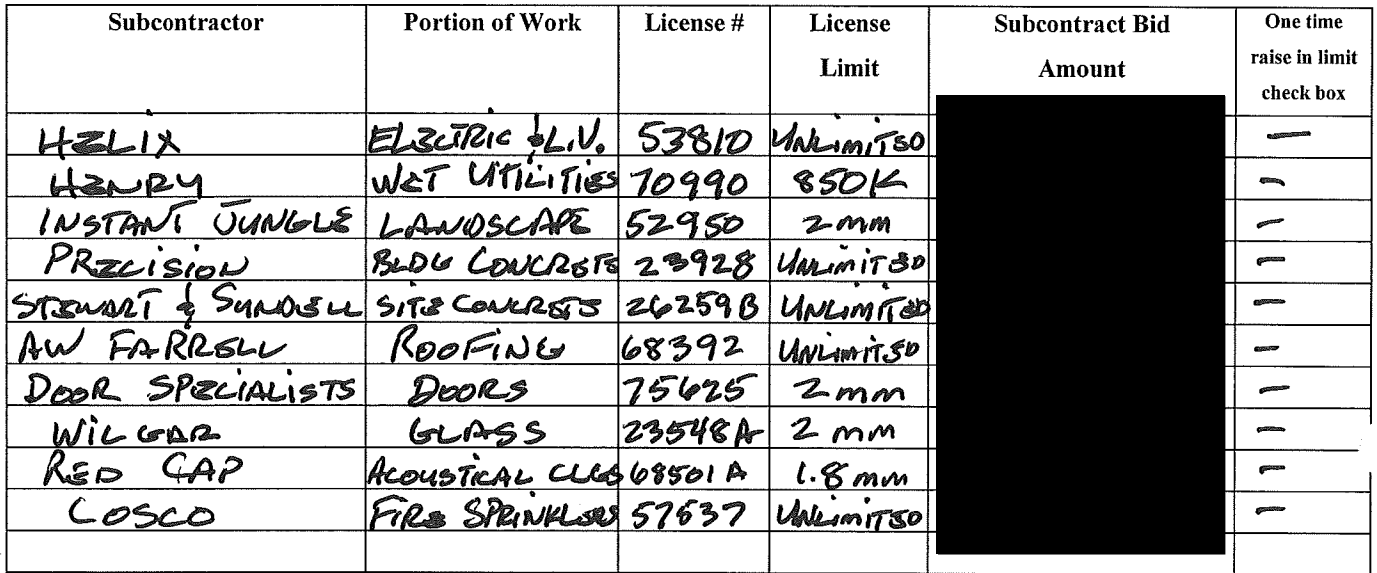 Subcontractor Portion of Work License # License Limit Subcontract Bid Amount One time raise in limit check box
HELIX ELECTRIC & L.V. 53810 UNLIMITED —
HENRY WET UTILITIES 70990 850K –
INSTANT JUNGLE LANDSCAPE 52950 2mm –
PRECISION BLDG CONCRETE 23928 UNLIMITED –
STEWART & SUNDELL SITE CONCRETE 26259B UNLIMITED –
AW FARRELL ROOFING 68392 UNLIMITED –
DOOR SPECIALISTS DOORS 75625 2mm –
WILGAR GLASS 23548A 2 mm –
RED CAP ACOUSTICAL CLGS 68501A 1.8 mm –
COSCO FIRE SPRINKLERS 57537 UNLIMITED –